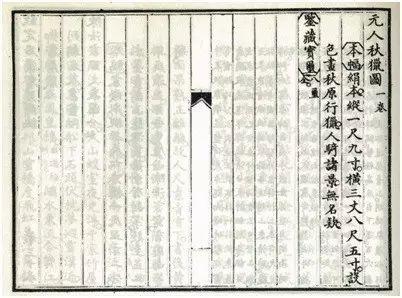 元人秋獵圖一卷
本幅絹本縱一尺九寸橫三丈八尺五寸設
色畫秋原行獵人騎諸景無名款
鑒藏寶璽八璽全